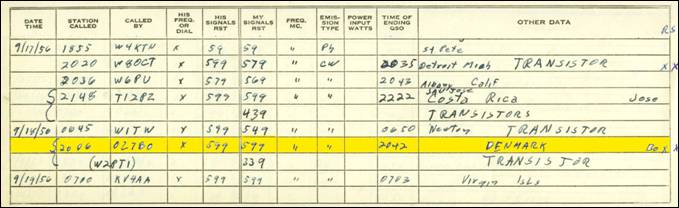 DATE TIME STATION CALLED CALLED BY HIS FREQ. OR DIAL HIS SIGNALS RST MY SIGNALS RST FREQ. MC. EMISSION TYPE POWER INPUT WATTS TIME OF ENDING QSO OTHER DATA
RS
9/17/56 1855 W4KTN X 59 59 " Ph St Pete
2020 W8OCT X 599 599 " CW 2035 Detroit Mich TRANSISTOR X X
2036 W6PU Y 579 569 " " 2043 Albany Calif
2148 TI2PZ Y 599 599 " " 2222 San Jose Costa Rica Jose
439 TRANSISTORS
0045 W1TW Y 599 549 " " 0050 Newton TRANSISTOR X
2006 OZ7BO X 599 599 " " 2042 DENMARK Bo X X
(W2PTI) 339 TRANSISTOR
9/19/56 0700 KV4AA Y 599 599 " " 0703 Virgin Isls